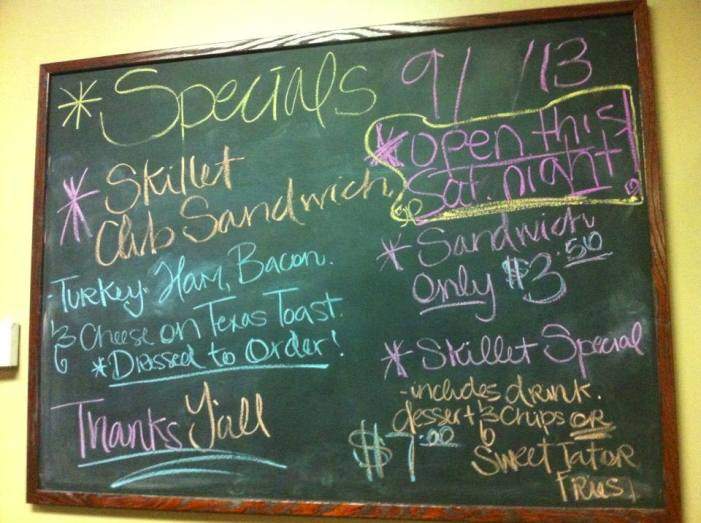 *Specials 9/ /13
*Skillet
Club Sandwich
-Turkey, Ham, Bacon.
& Cheese on Texas Toast.
*Dressed to Order!
Thanks Y'all
*Open this
Sat. night!
*Sandwich
Only $3.50
*Skillet Special
-includes drink.
dessert & Chips OR
$7.00 Sweet Tator
Fries!